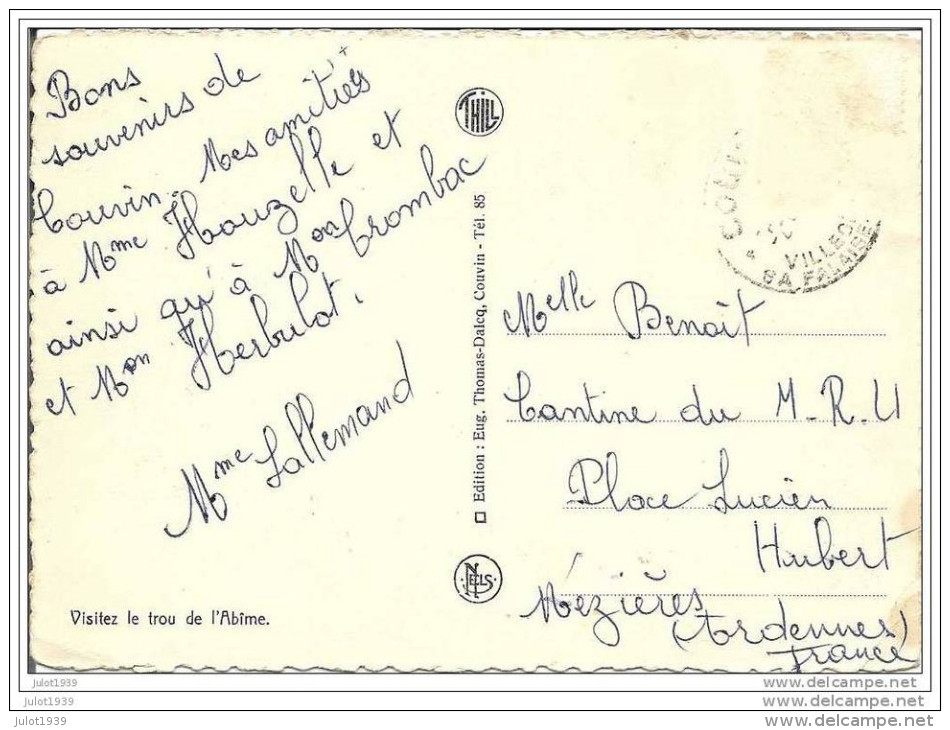 Bons
souvenirs de
Couvin. Mes amitiés
à Mme Houzelle et
ainsi qu'à Mon Crombac
et Mon Herbulot.
Mme Lallemand
Visitez le trou de l'Abîme.
THILL
Edition : Eug. Thomas-Dalcq, Couvin - Tél. 85
NELS
COU
VILLEG
SA FALAISE
Melle Benoît
Cantine du M-R-U
Place Lucien
Hubert
Mézières
(Ardennes)
France
Julot1939
www.delcampe.net
Julot1939
www.delcampe.net
Julot1939
www.delcampe.net